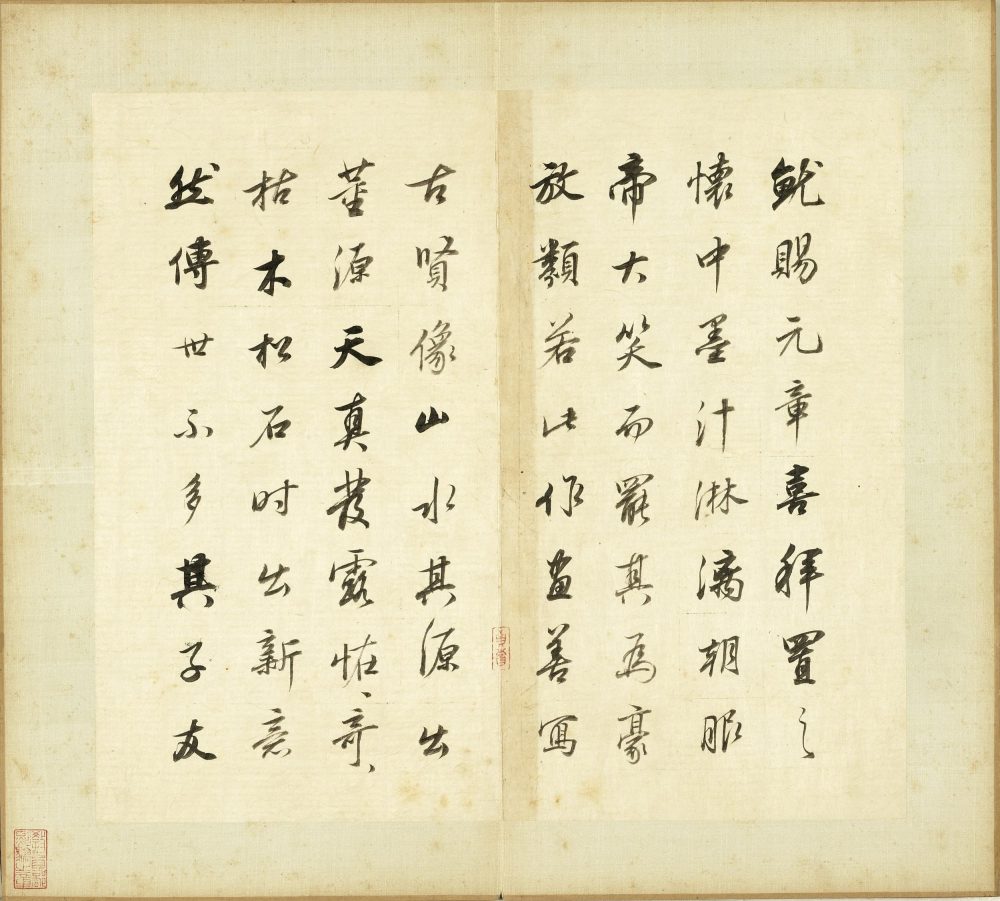 就賜元章喜拜置之
懷中墨汁淋漓朝服
帝大笑而罷其為豪
放類若此作畫善寫
古賢像山水其源出
董源天真發露恠恠奇奇
枯木松石时出新意
然傳世不多其子友